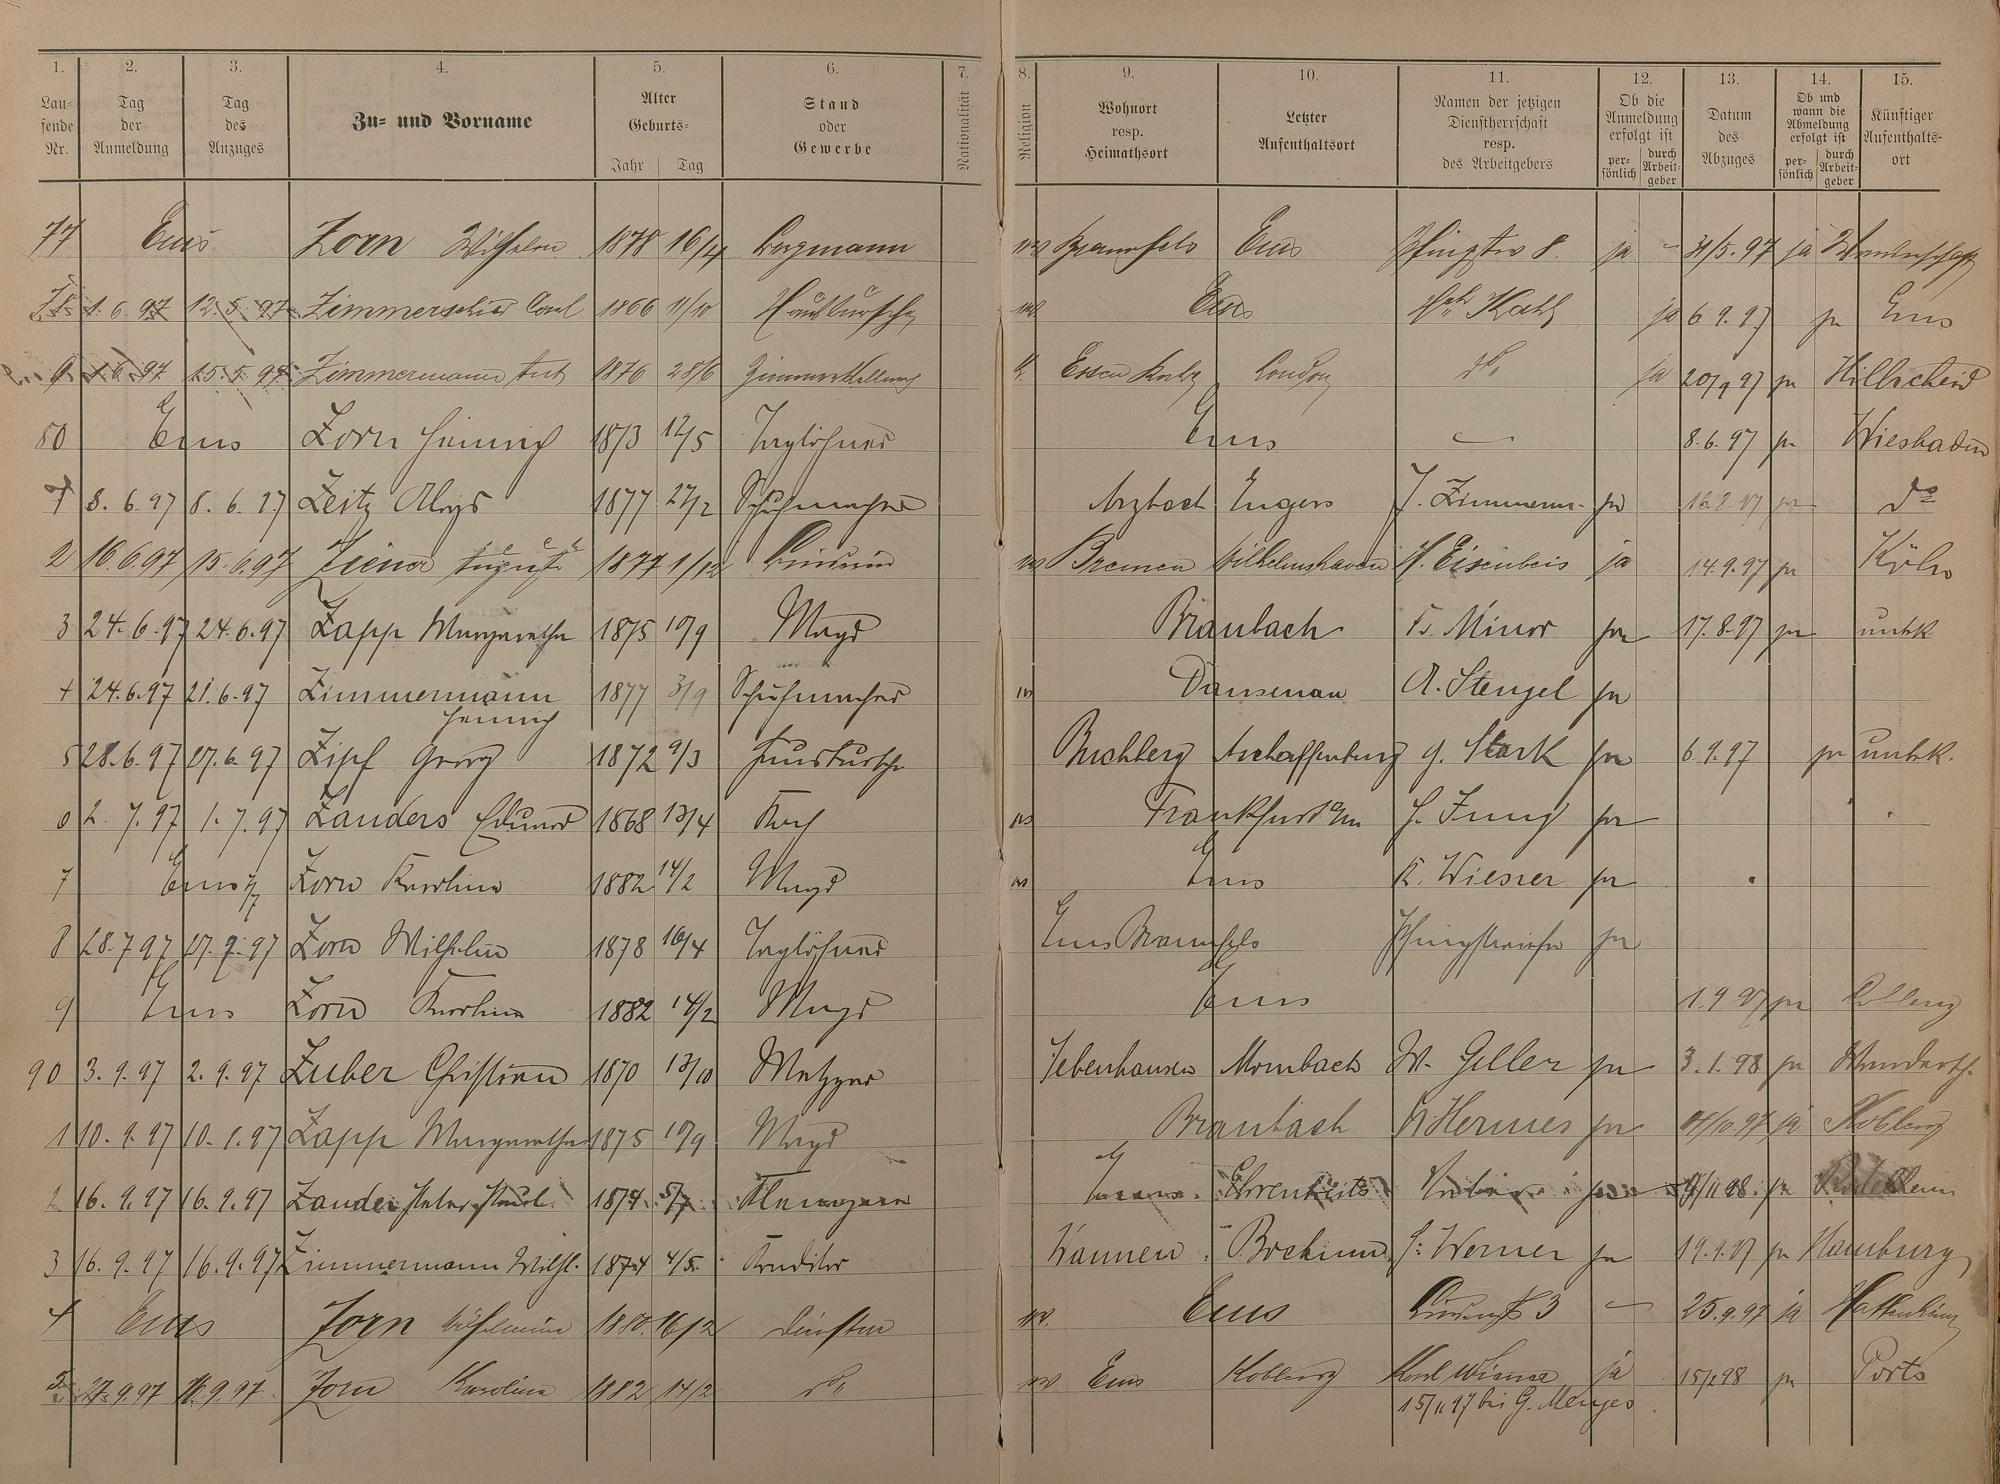 1. 2. 3. 4. 5. 6. 7. 8. 9. 10. 11. 12. 13. 14. 15.
Lau-
fende
Nr.
Tag
der
Anmeldung
Tag
des
Anzuges
Zu- und Vorname
Alter
Geburts-
Jahr Tag
Stand
oder
Gewerbe
Nationalität
Religion
Wohnort
resp.
Heimathsort
Letzter
Aufenthaltsort
Namen der jetzigen
Dienstherrschaft
resp.
des Arbeitgebers
Ob die
Anmeldung
erfolgt ist
per-
sönlich
durch
Arbeit-
geber
Datum
des
Abzuges
Ob und
wann die
Abmeldung
erfolgt ist
per-
sönlich
durch
Arbeit-
geber
Künftiger
Aufenthalts-
ort
77 Ems Zorn Wilhelm 1878 16/4 Bergmann Braunfels Ems Pfingstw 8. ja - 31/5.97 ja Wanderschaft
78 1.6.97 12.5.97 Carl 1866 11/10 Hausbursche Ems ja 6.9.97 ja Ems
9 1.6.97 15.5.97 Zimmermann 1876 28/6 Zimmerkellner Essen London do ja 20/9 97 ja Hillscheid
80 Ems Zorn Heinrich 1873 12/5 Taglöhner Ems 8.6.97 ja Wiesbaden
1 8.6.97 8.6.97 Zeitz Aloys 1877 27/2 Schuhmacher Arzbach Engers J. Zimmerm. ja 16.8.97 ja do
2 16.6.97 15.6.97 Auguste 1877 1/12 Bremen Wilhelmshaven H. Eisenbeis ja 14.9.97 ja Köln
3 24.6.97 24.6.97 Zapp Margaretha 1875 10/9 Magd Braubach Fr. Minor ja 17.8.97 ja unbk
4 24.6.97 21.6.97 Zimmermann 1877 3/9 Schuhmacher Dausenau A. Stengel ja
Heinrich
5 28.6.97 27.6.97 Zipf Georg 1872 9/3 Hausbursche Buchberg Aschaffenburg G. Stark ja 6.9.97 ja unbk.
6 2.7.97 1.7.97 Zanders Eduard 1868 13/4 Koch Frankfurt a/m H. Jung ja
7 Ems Zorn Karolina 1882 14/2 Magd Ems K. Wiesser ja
8 28.7.97 27.7.97 Zorn Wilhelm 1878 16/4 Taglöhner Ems Braunfels Pfingstwiese ja
9 Ems Zorn Karolina 1882 14/2 Magd Ems 1.9.97 ja Coblenz
90 3.9.97 2.9.97 Zuber Christian 1870 13/10 Metzger Jebenhausen Mombach W. Geller ja 3.1.98 ja Wandersch.
1 10.9.97 10.9.97 Zapp Margaretha 1875 10/9 Magd Braubach Hermes ja ja Koblenz
2 16.9.97 16.9.97 Zander Peter Paul 1874 5/7 Ems Ehrenbreits ja ja
3 16.9.97 16.9.97 Zimmermann Wilh. 1874 4/5 Konditor Wannen Bochum H. Werner ja 19.9.97 ja Hamburg
4 Ems Zorn Wilhelmine 1880 16/2 Ems 3 - 25.9.97 ja
5 27.9.97 Zorn Karolina 1882 14/2 do Ems Koblenz Karl ja 15/2 98 ja Ports
15/11.97 bei G. Menges